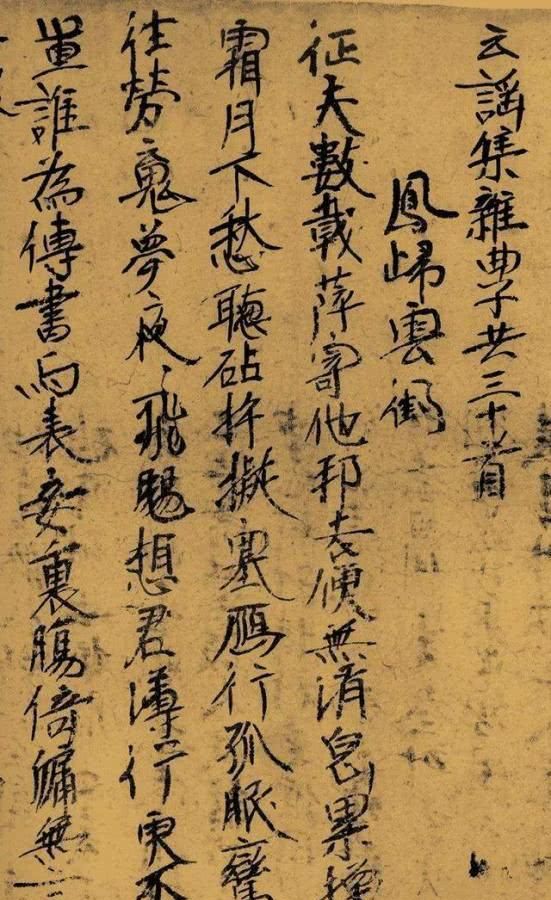 云謠集雜曲子共三十首
鳳歸雲
征夫數載萍寄他邦去便無消息累換
霜月下愁聽砧杵擬塞鴈行孤眠鸞
往勞魂夢夜〻飛颺想君薄行更不
量誰為傳書与表妾裏膓倚牖無言